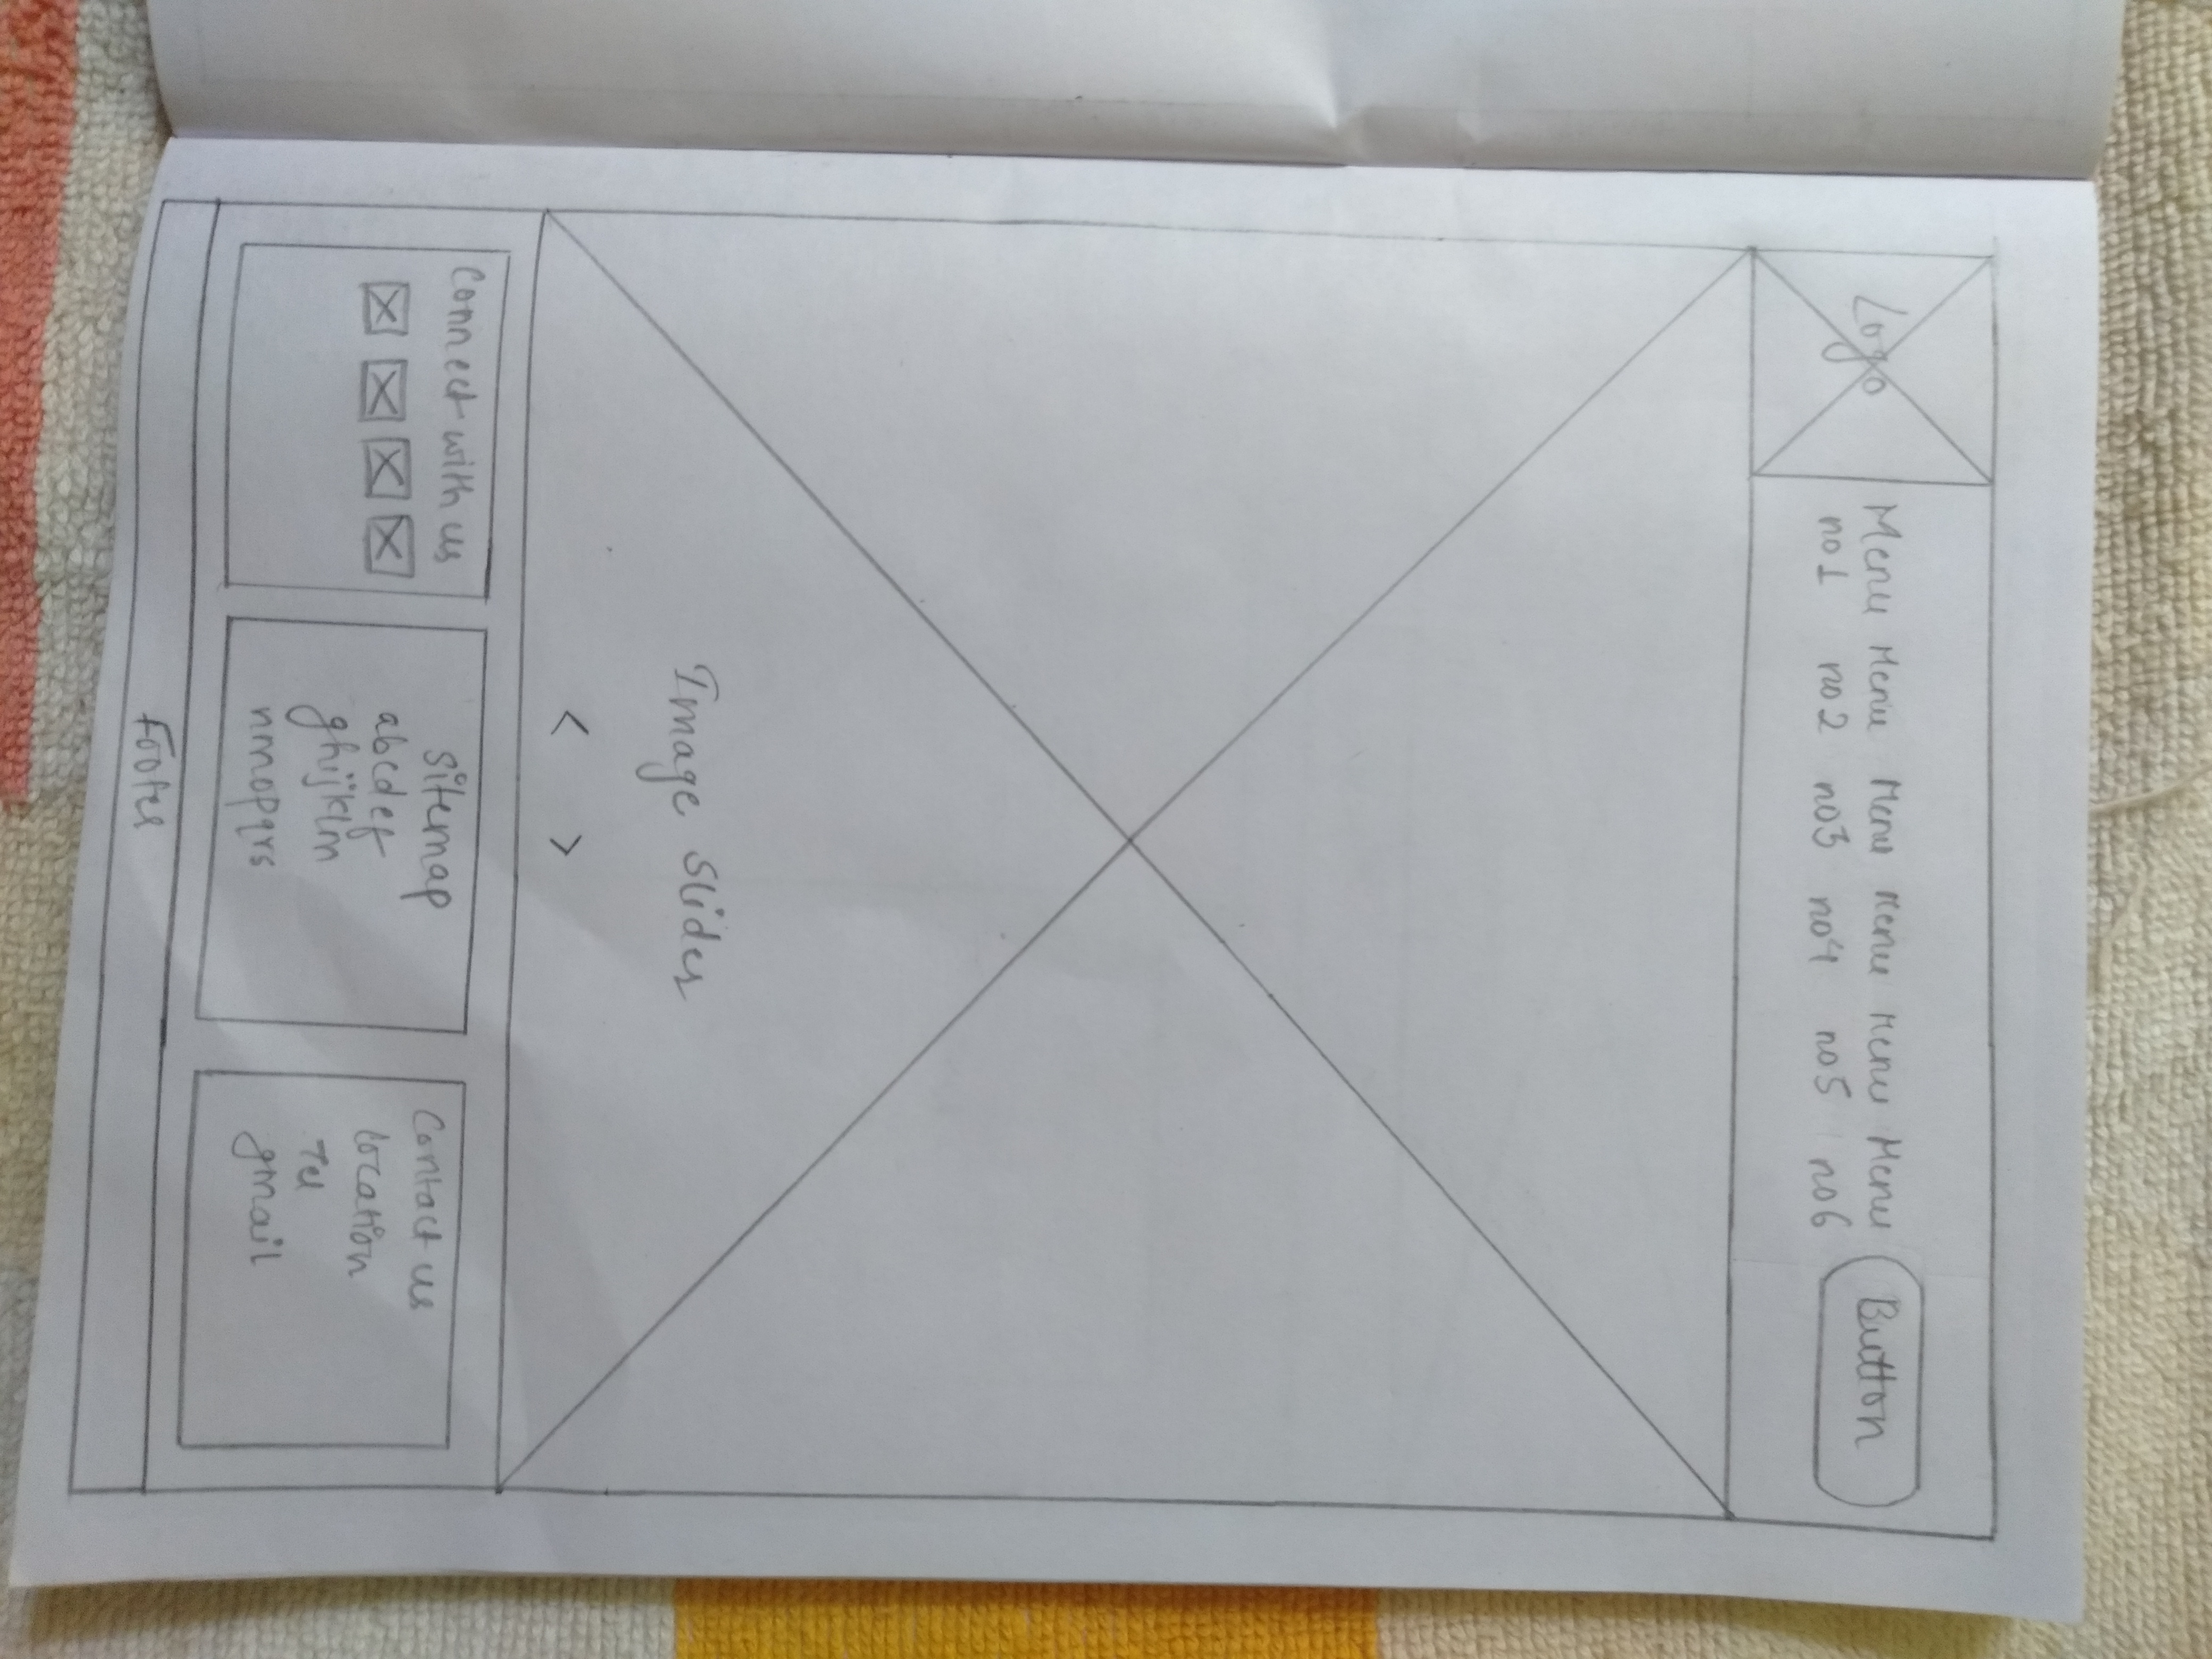 Logo
Menu Menu Menu Menu Menu Menu
no1 no2 no3 no4 no5 no6
Button
Image Slider
< >
Connect with us
Sitemap
abcdef
ghijklm
nmopqrs
Contact us
location
Tel
gmail
Footer